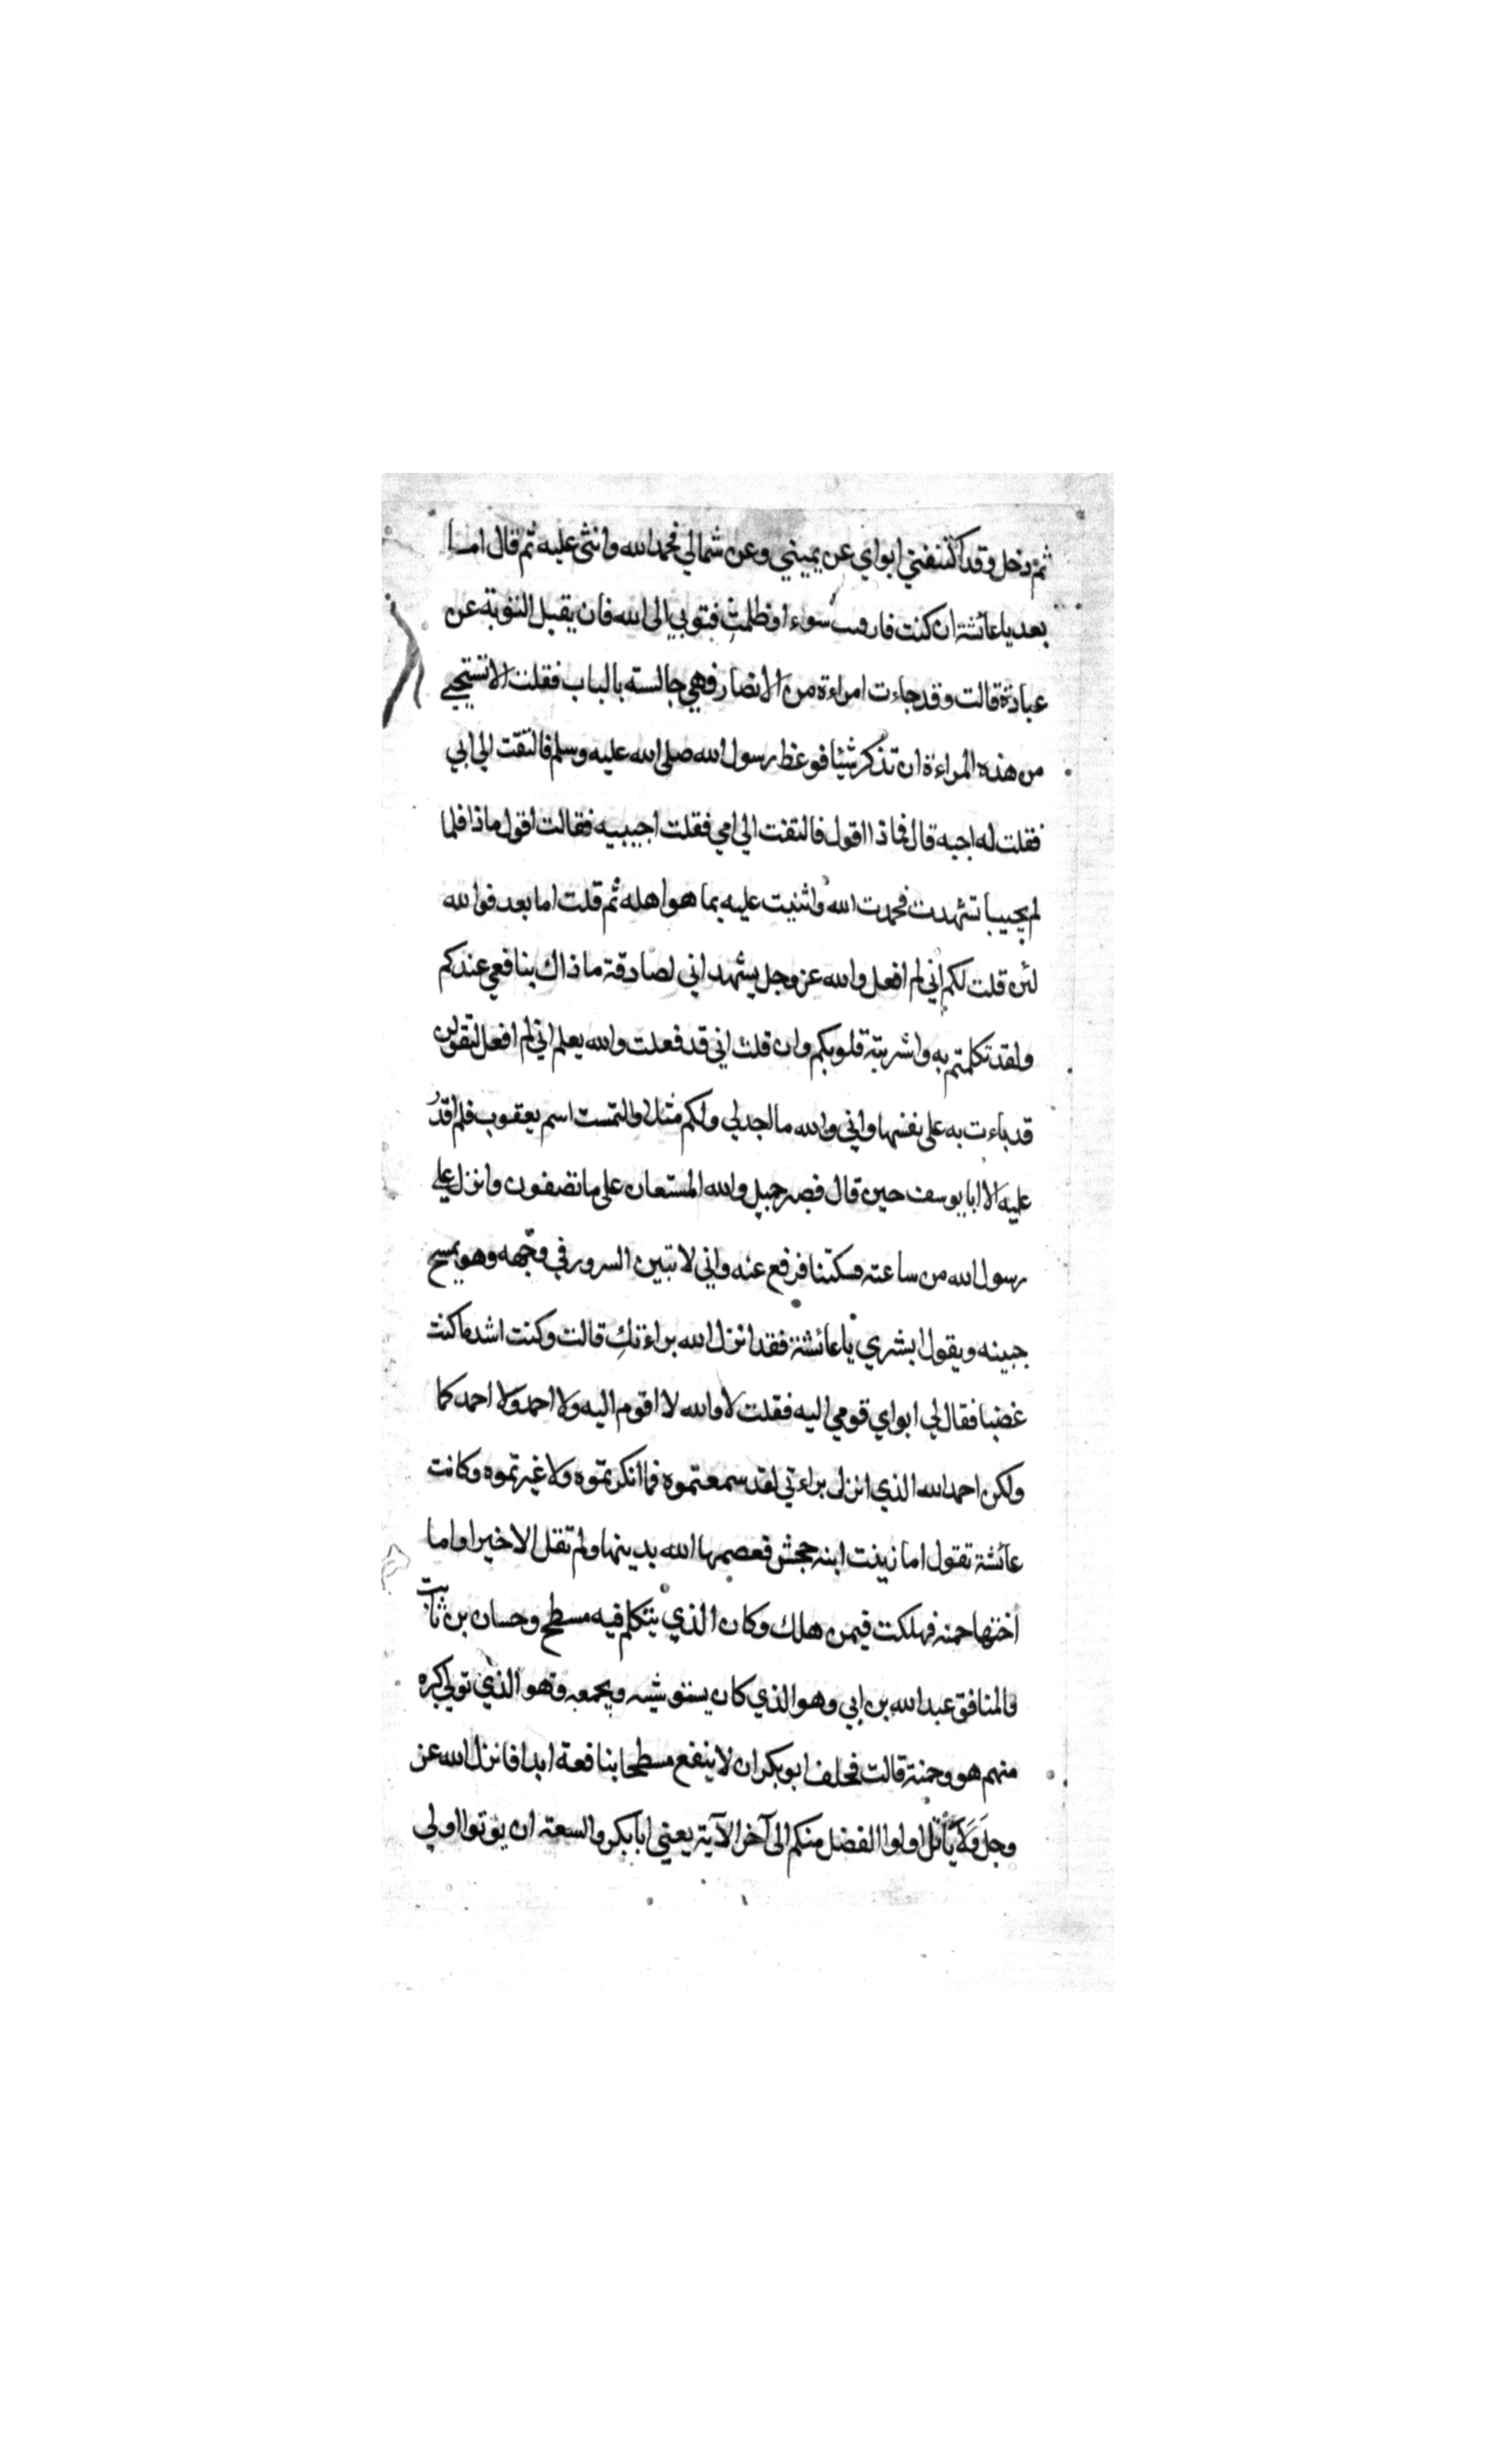 ثم دخل وقد اكتنفني ابواي عن يميني وعن شمالي فحمد الله واثنى عليه ثم قال اما
بعد يا عائشة ان كنت قارفت سوء او ظلمت فتوبي الى الله فان يقبل التوبة عن
عباده قالت وقد جاءت امراءة من الانصار فهي جالسة بالباب فقلت الا تستحيي
من هذه المراءة ان تذكر شيئا فوعظ رسول الله صلى الله عليه وسلم فالتفت الى ابي
فقلت له اجبه قال فماذا اقول فالتفت الى امي فقلت اجيبيه فقالت اقول ماذا فلما
لم يجيبا تشهدت فحمدت الله واثنيت عليه بما هو اهله ثم قلت اما بعد فوالله
لئن قلت لكم اني لم افعل والله عز وجل يشهد اني لصادقة ما ذاك بنافعي عندكم
ولقد تكلمتم به واشربته قلوبكم وان قلت اني قد فعلت والله يعلم اني لم افعل لتقولن
قد باءت به على نفسها واني والله ما اجد لي ولكم مثلا والتمست اسم يعقوب فلم اقدر
عليه الا ابا يوسف حين قال فصبر جميل والله المستعان على ما تصفون وانزل على
رسول الله من ساعته فسكتنا فرفع عنه واني لاتبين السرور في وجهه وهو يمسح
جبينه ويقول ابشري يا عائشة فقد انزل الله براءتك قالت وكنت اشد ما كنت
غضبا فقال لي ابواي قومي اليه فقلت لا والله لا اقوم اليه ولا احمده ولا احمدكما
ولكن احمد الله الذي انزل براءتي لقد سمعتموه فما انكرتموه ولا غيرتموه وكانت
عائشة تقول اما زينت ابنة جحش فعصمها الله بدينها ولم تقل الا خيرا واما
اختها حمنه فهلكت فيمن هلك وكان الذي يتكلم فيه مسطح وحسان بن ثابت
والمنافق عبد الله بن ابي وهو الذي كان يستوشيه ويجمعه وهو الذي تولى كبره
منهم هو وحمنة قالت فحلف ابو بكر ان لا ينفع مسطحا بنافعة ابدا فانزل الله عز
وجل وَلَا يَأْتَلِ اولوا الفضل منكم الى آخر الآية يعني ابا بكر والسعة ان يوتوا اولي